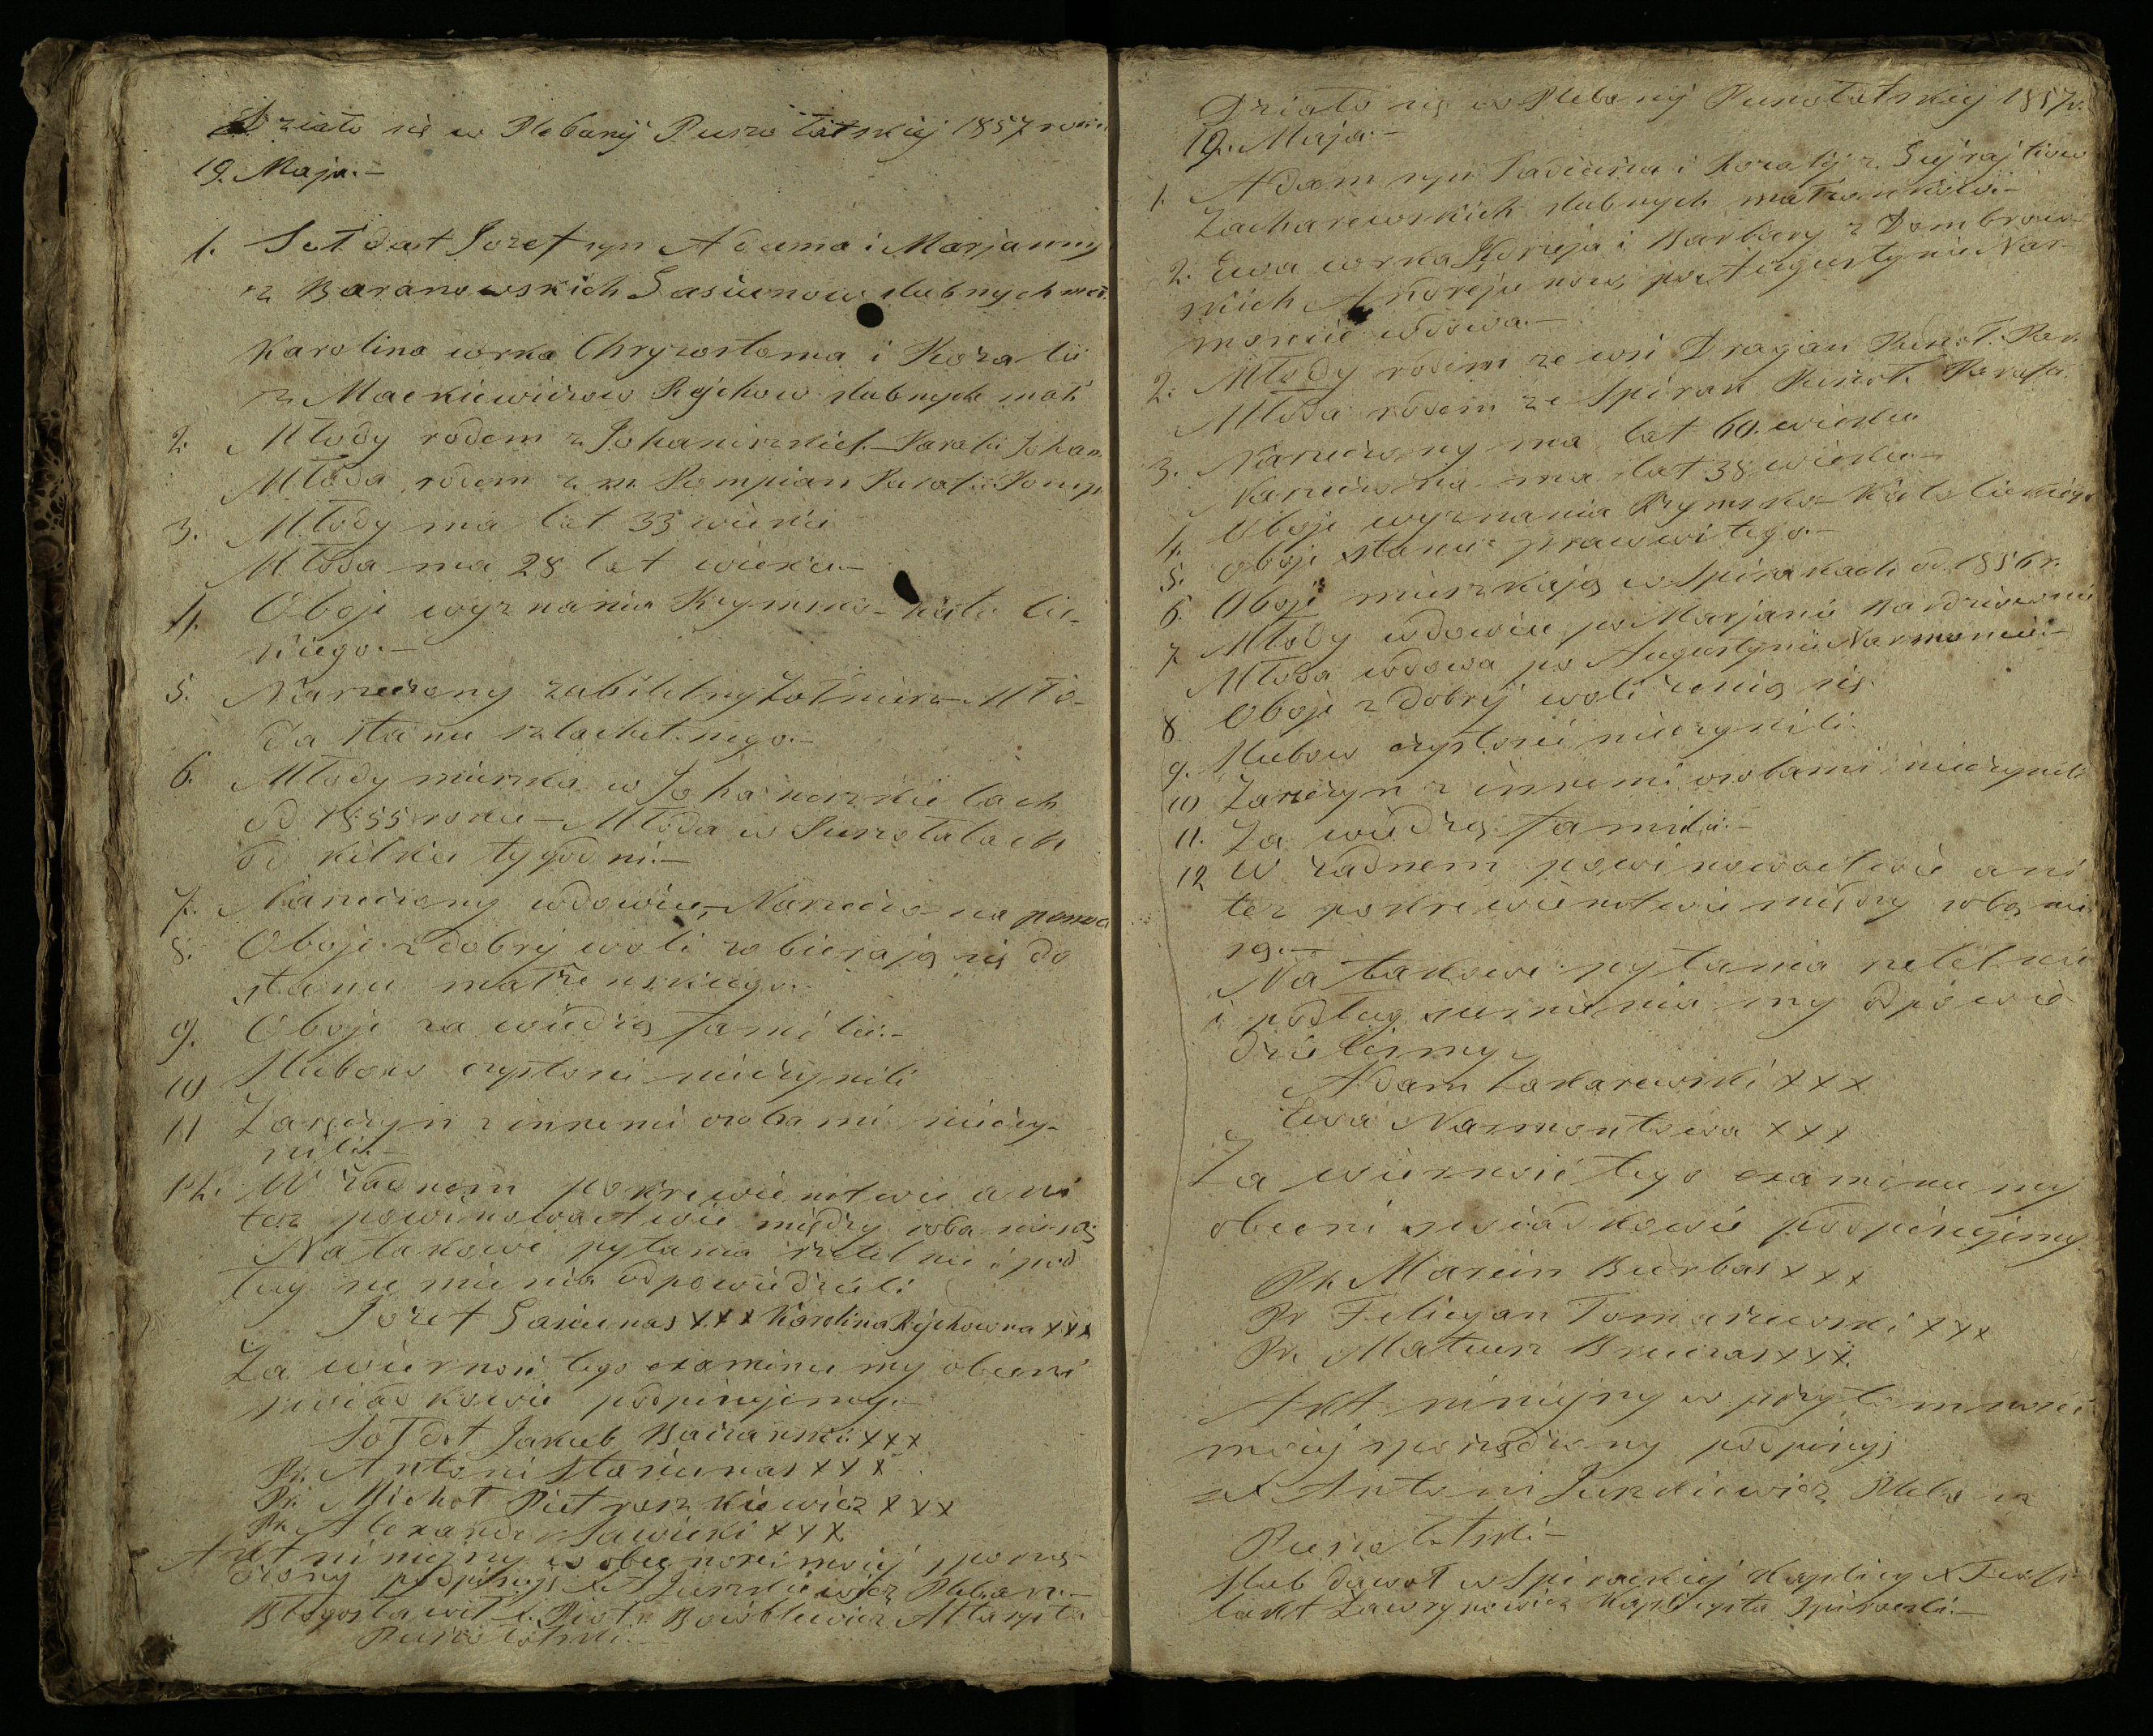 Działo się w Plebanij Puszołatskiej 1857 roku
19. Maja.—
1. Sołdat Jozef syn Adama i Marjanny
z Baranowskich Sasiunow slubnych
Karolina corka Chryzostoma i Rozalii
z Mackiewiczow Rychow slubnych mał
2. Młody rodem z Johaniszkiel.— Parafii Johan.
Młoda rodem z m. Pompian Parafii Pomp
3. Młody ma lat 35 wieku
Młoda ma 28 lat wieku.—
4. Oboje wyznania Rzymsko-katolic-
kiego.—
5. Narzeczony zabiletny żołnierz. Mło-
da stanu szlachetnego.—
6. Młody mieszka w Johaniszkielach
od 1855 roku — Młoda w Puszołatach
od kilku tygodni.—
7. Narzeczony wdowiec, Narzeczona panna
8. Oboje z dobrej woli zabierają się do
stanu małżenskiego.
9. Oboje za wiedzą familii.—
10 Slubow czystosci nieczynili
11 Zaręczyn z innemi osobami nieczy-
nili.—
12. W żadnem pokrewienstwie ani
też powinowactwie między sobą nie są
Na takowe pytania rzetelnie i pod
ług sumienia odpowiedzieli
Jozef Sasiunas XXX Karolina Rychowna XXX
Za wiernosc tego examinu my obecni
swiadkowie podpisujemy.—
Sołdat Jakub XXX
Pr. Antoni Stasiunas XXX
Pr. Michał Pietraszkiewicz XXX
Pr. Alexander Sawicki XXX
Akt niniejszy w obecnosci mojej sporzą-
dzony podpisuję X A Juszkiewicz Pleban.—
Błogosławił X. Piotr Altarysta
Puszołatski.—
Działo się w Plebanij Puszołatskiej 1857 r.
19. Maja.—
1. Adam syn i Rozalij z
Zacharewskich slubnych małżonkow.—
2. Ewa corka Andrzeja i Barbary z Dombrow-
skich Andrejunow, po Augustynie Nar-
moncie wdowa.—
2. Młody rodem ze wsi Dragan Puszoł. Par.
Młoda rodem ze Spirak Puszoł. Parafii
3. Narzeczony ma lat 60. wieku
Narzeczona ma lat 38 wieku.—
4. Oboje wyznania Rzymsko-Katolickiego
5. Oboje stanu prawowitego.—
6. Oboje mieszkają w Spirakach od 1856 r.
7. Młody wdowiec po Marjanie
Młoda wdowa po Augustynie Narmoncie.—
8. Oboje z dobrej woli żenią się.
9. Slubow czystosci nieczynili.
10 Zaręczyn z innemi osobami nieczynili
11. Za wiedzą familii.—
12 W żadnem powinowactwie ani
też pokrewienstwie między sobą nie
są.—
Na takowe pytania rzetelnie
i podług sumienia my odpowie
dzielismy
Adam Zakarewski XXX
Ewa Narmontowa XXX
Za wiernosc tego examinu my
obecni swiadkowie podpisujemy
Pr. Marcin Burbas XXX
Pr Felicyan Tomaszewski XXX
Pr. Mateusz XXX
Akt niniejszy w przytomnosci
mojej sporządzony podpisuję
X Antoni Juszkiewicz Pleban
Puszołatski.—
Slub dawał w Spirackiej Kaplicy X Teofi-
lakt Ławrynowicz Kaplicysta Spiracki.—